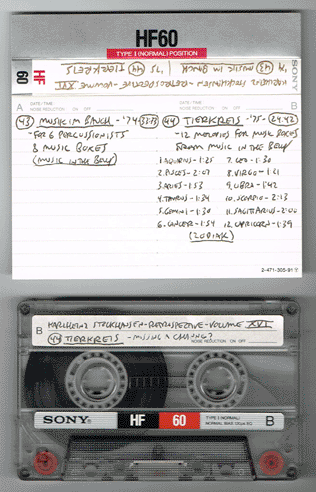 HF60
TYPE I (NORMAL) POSITION
SONY
HF
60
KARLHEINZ STOCKHAUSEN - RETROSPECTIVE - VOLUME XVI
'74 (43) MUSIK IM BAUCH | '75 (44) TIERKREIS
A
DATE / TIME
NOISE REDUCTION ON OFF
B
DATE / TIME
NOISE REDUCTION ON OFF
(43) MUSIK IM BAUCH - '74
- FOR 6 PERCUSSIONISTS
& MUSIC BOXES
(MUSIC IN THE BELLY)
(44) TIERKREIS - '75 - (24:42)
- 12 MELODIES FOR MUSIC BOXES
FROM MUSIC IN THE BELLY
1. AQUARIUS - 1:25
2. PISCES - 2:07
3. ARIES - 1:53
4. TAURUS - 1:34
5. GEMINI - 1:38
6. CANCER - 1:54
7. LEO - 1:30
8. VIRGO - 1:21
9. LIBRA - 1:42
10. SCORPIO - 2:13
11. SAGITTARIUS - 2:00
12. CAPRICORN - 1:39
(ZODIAK)
2-471-305-91
B
KARLHEINZ STOCKHAUSEN - RETROSPECTIVE - VOLUME XVI
(44) TIERKREIS - MISSING A CHAUNG?
NOISE REDUCTION ON OFF
SONY
HF
60
TYPE I (NORMAL)
NORMAL BIAS 120μs EQ
B